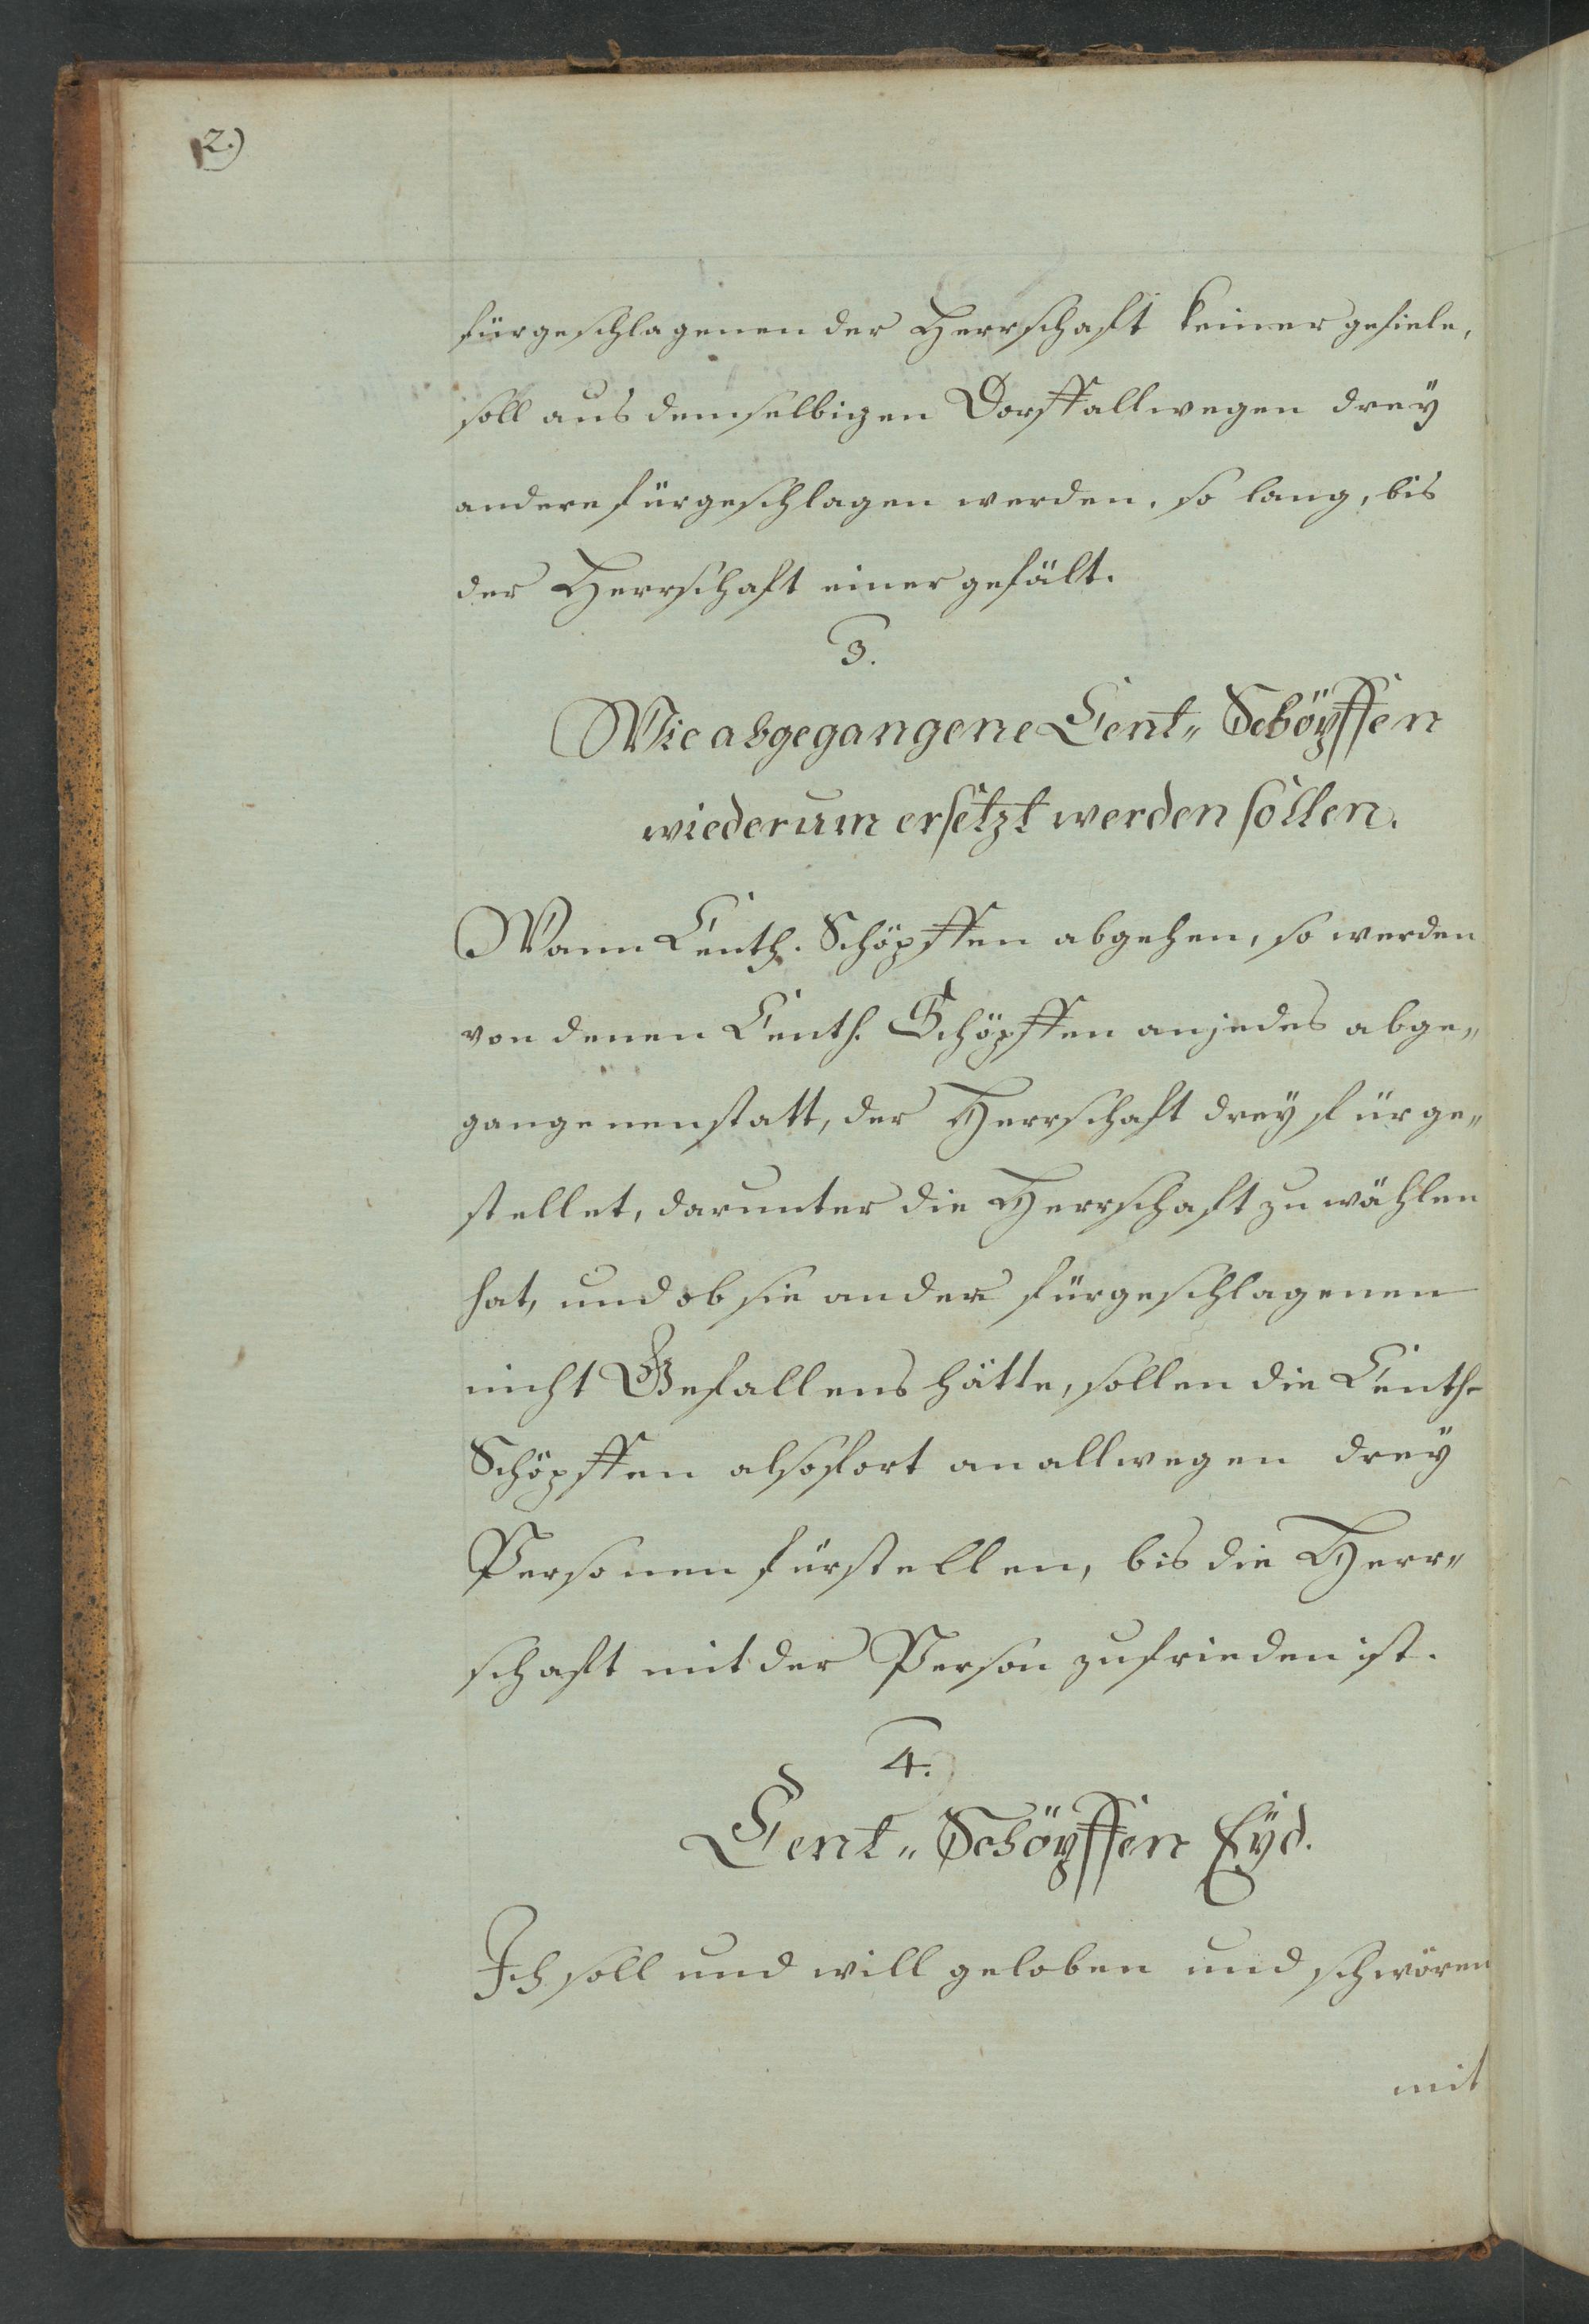 2.)
fürgeschlagenen der Herrschaft keiner gefiele,
soll aus demselbigen Dorff allwegen dreÿ
andere fürgeschlagen werden, so lang, bis
der Herrschaft einer gefält.
3.
Wie abgegangene Cent„ Schöpffen
wiederum ersetzt werden sollen.
Wann Centh. Schöpffen abgehen, so werden
von denen Centh. Schöpffen an jedes abge„
gangenen statt, der Herrschaft dreÿ fürge„
stellet, darunter die Herrschaft zu wählen
hat, und ob sie an der fürgeschlagenen
nicht Gefallens hätte, sollen die Centh-
Schöpffen alsofort an allwegen dreÿ
Personen fürstellen, bis die Herr„
schaft mit der Person zufrieden ist.
4.
Cent„ Schöpffen Eÿd.
Ich soll und will geloben und schwören
mit